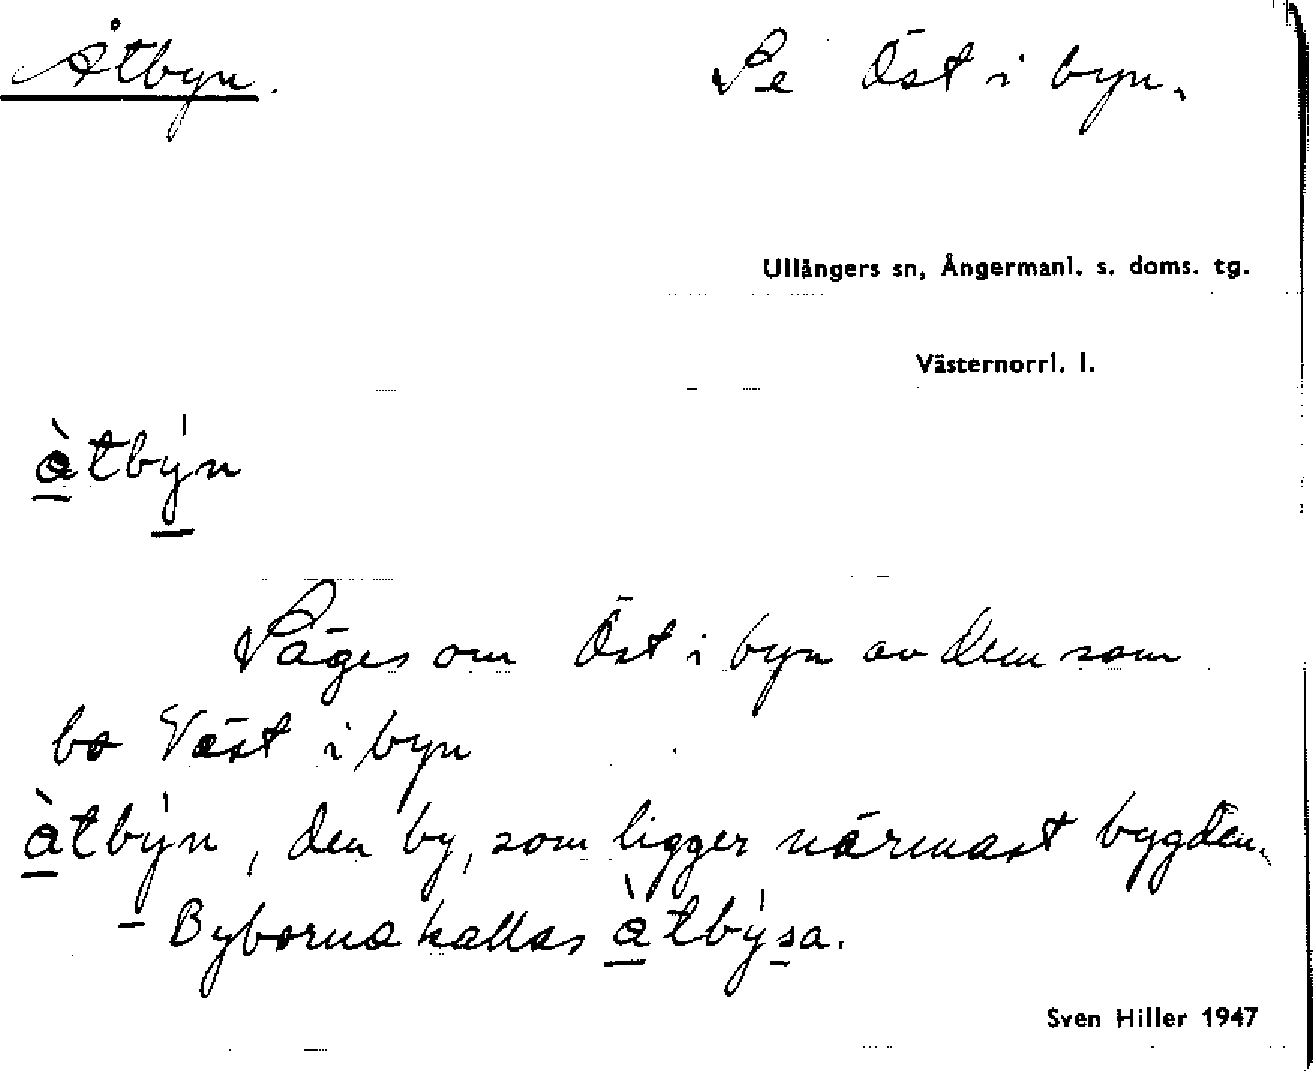 Åtbyn. Se Öst i byn.
Ullångers sn, Ångermanl. s. doms. tg.
Västernorrl. l.
àtbýn
Säges om Öst i byn av dem som
bo Väst i byn
àtbýn, den by, som ligger närmast bygden.
- Byborna kallas àtbýsa.
Sven Hiller 1947